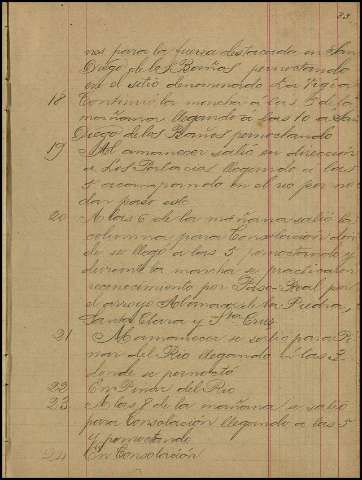 33
nes para la fuerza destacada en San
Diego de los Baños pernoctando
en el sitio denominado La Vigia
18 Continuó la marcha a las 5 de la
mañana llegando a las 10 a San
Diego de los Baños pernoctando
19 Al amanecer salió en dirección
a Los Portacias llegando a las
5 acampando en el rio por no
dar paso este
20 A las 6 de la mañana salió la
columna para Consolación don
de se llegó a las 5 pernoctando y
durante la marcha se practicaron
reconocimiento por Paso Real por
el arroyo la Piedra,
Santa Clara y Sta Cruz
21 Al amanecer se salio para Pi
nar del Rio llegando a las 3
donde se pernoctó
22 En Pinar del Rio
23 A las 8 de la mañana se salió
para Consolación llegando a las 5
y pernoctando
24 En Consolación